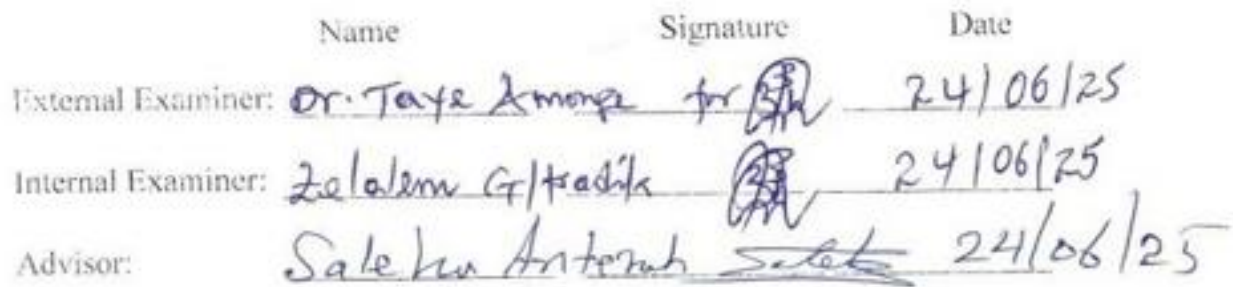 Name Signature Date
External Examiner: Dr. Taye Amonge for 24/06/25
Internal Examiner: Zelalem G/tsadik 24/06/25
Advisor: Antenah 24/06/25